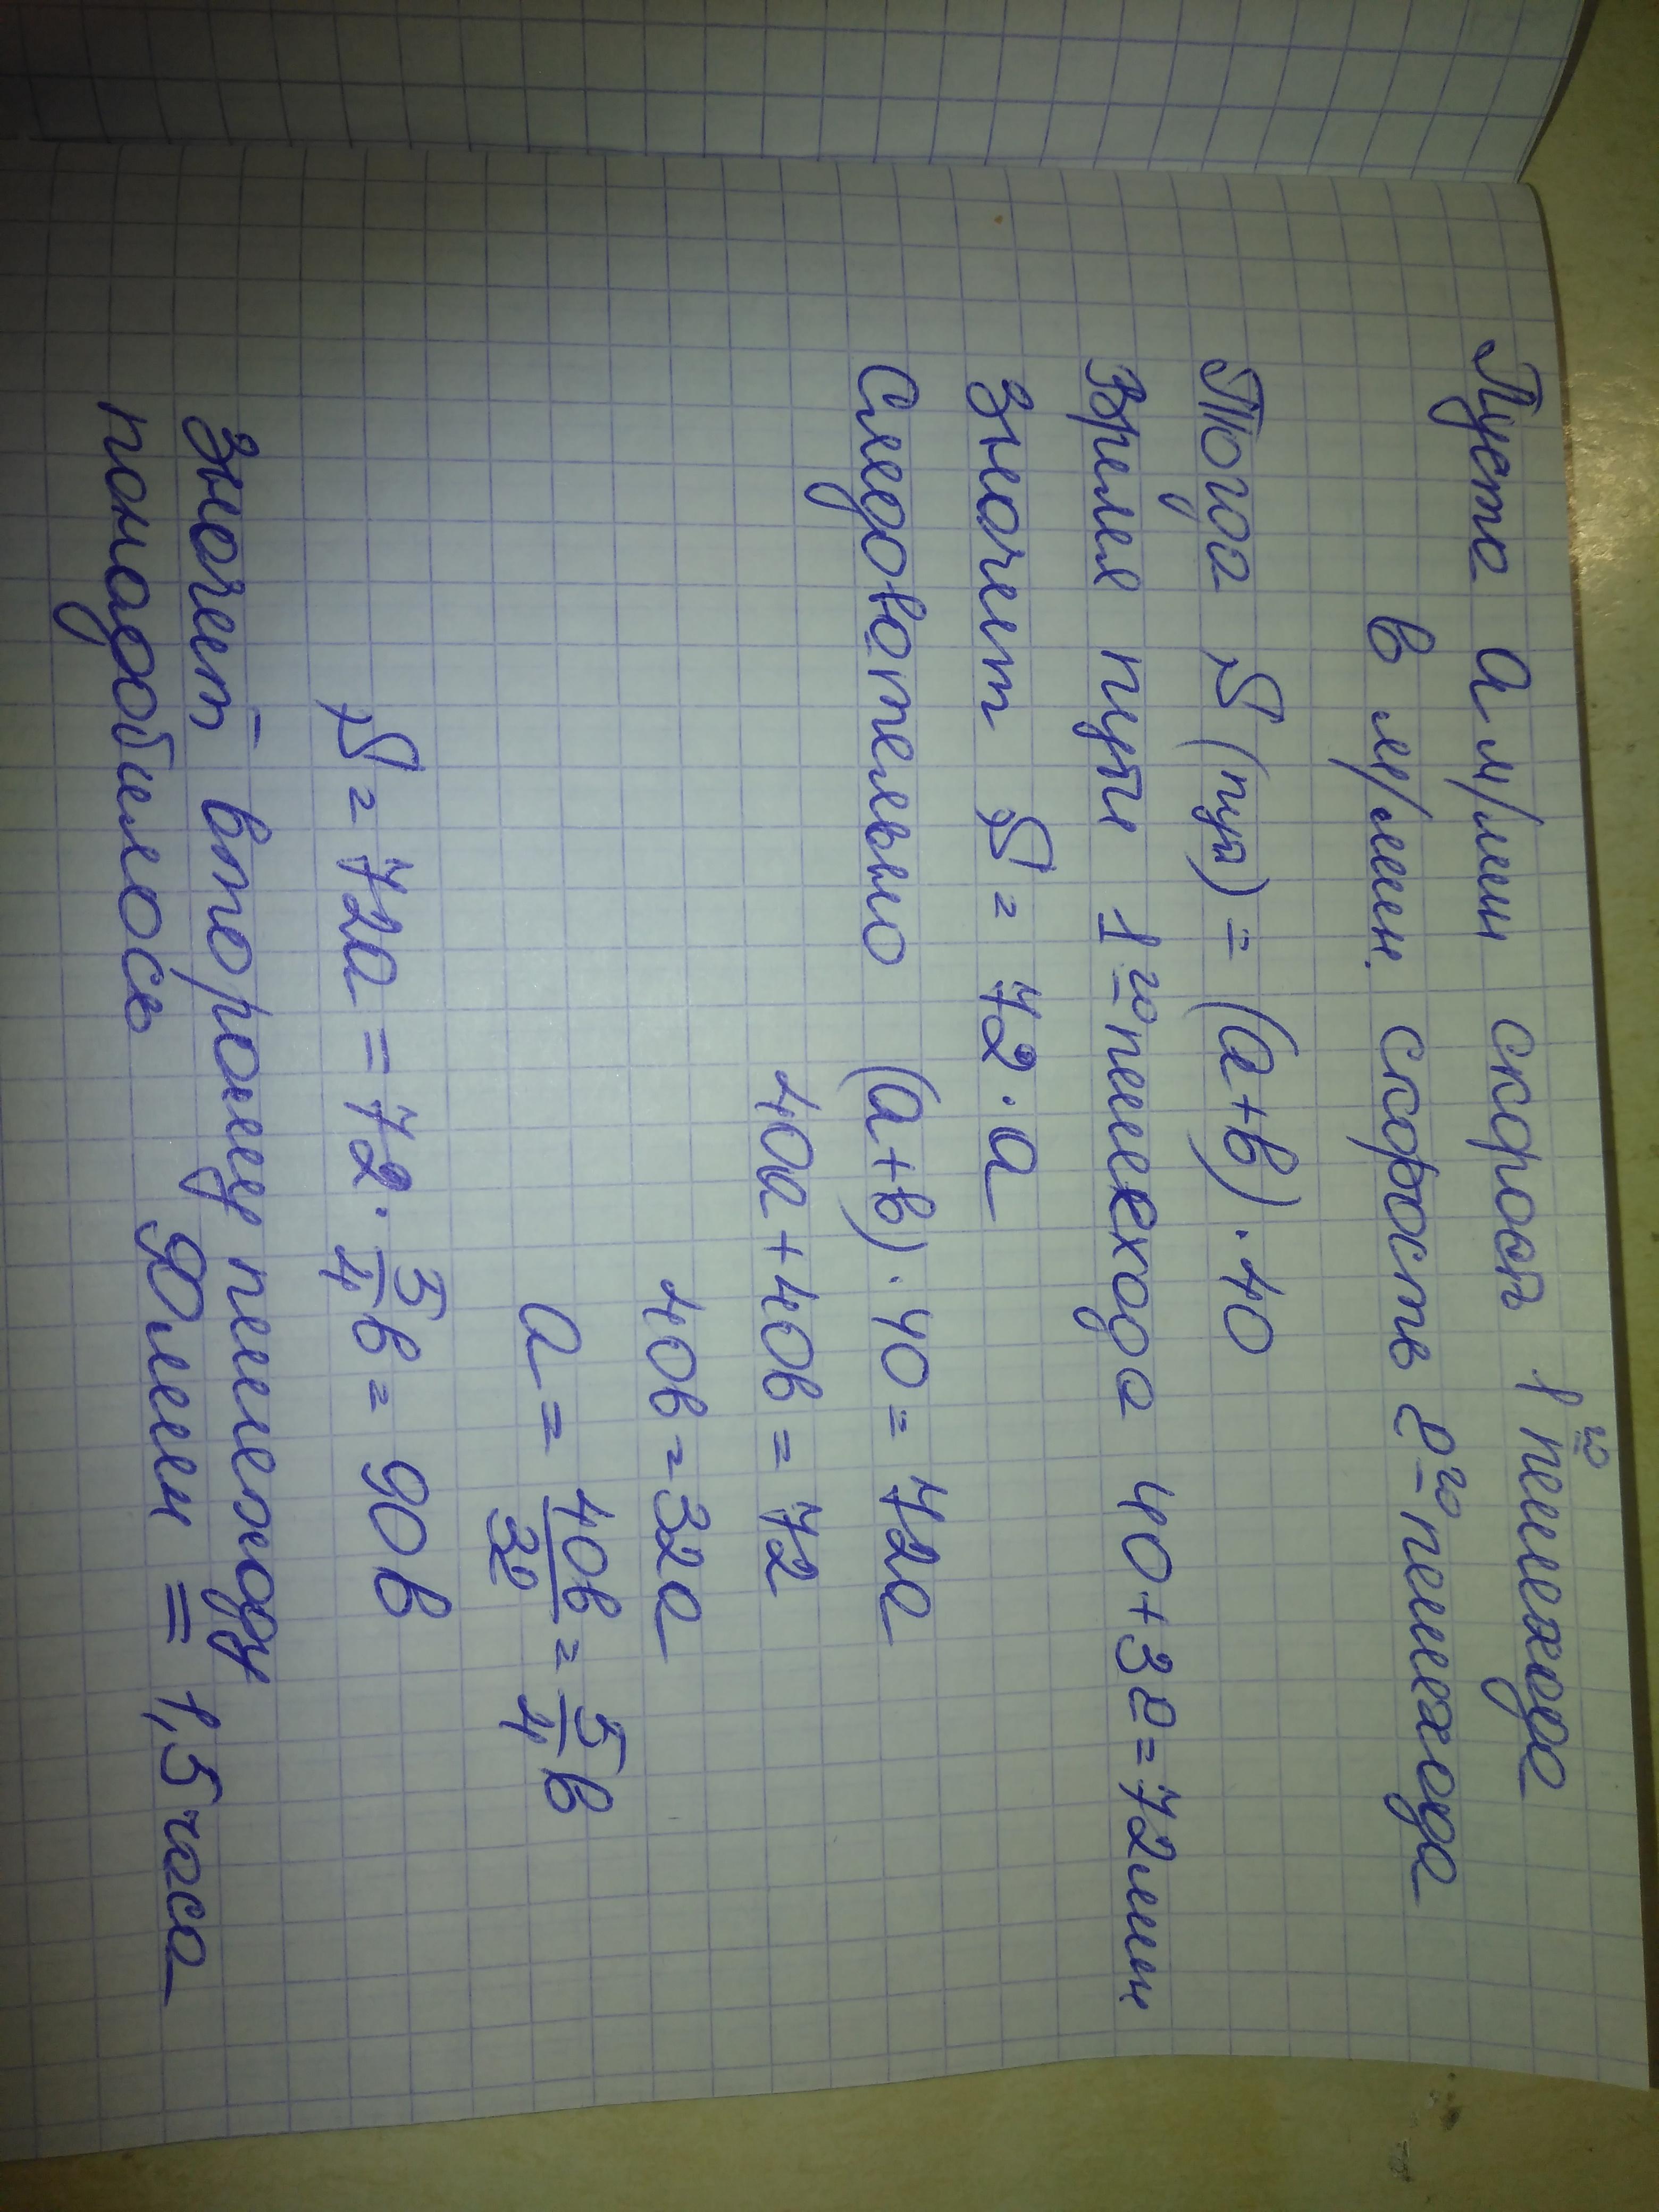 Пусть а м/мин скорост 1го пешехода
в м/мин. скорость 2го пешехода
Тогда S (пути) = (а+в)·40
Время пути 1го пешехода 40+32=72мин
Значит S = 72·а
Следовательно (а+в)·40=72а
40а+40в=72
40в=32а
а=40в/32=5/4в
S=72а=72·5/4в=90в
Значит второму пешеходу
понадобилось 90мин=1,5часа